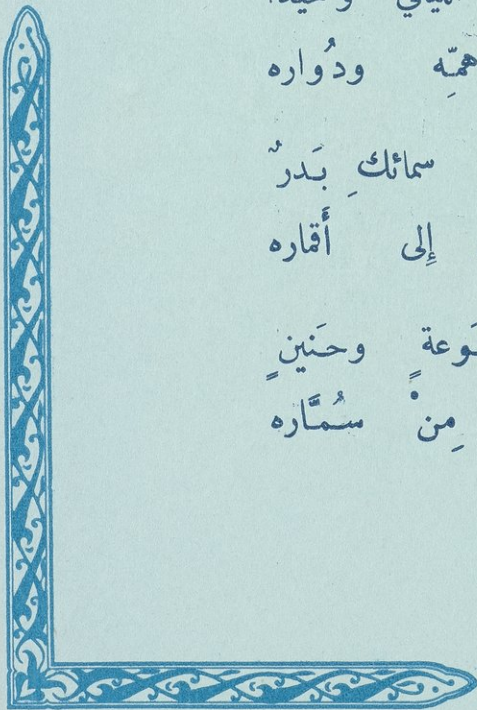 همِّه ودُواره
سمائكِ بَدرٌ
إِلى أَقماره
وحَنينٍ
مِنْ سُمَّاره